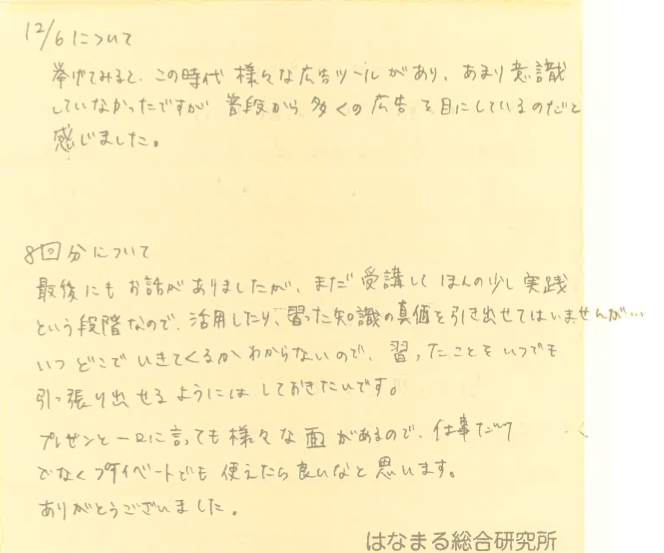 12/6について
挙げてみると、この時代 様々な広告ツールがあり、あまり意識
していなかったですが 普段から 多くの広告を目にしているのだと
感じました。
8回分について
最後にもお話がありましたが、まだ受講して ほんの少し実践
という段階なので、活用したり、習った知識の真価を引き出せてはいませんが…
いつどこでいきてくるかわからないので、習ったことをいつでも
引っ張り出せるようにはしておきたいです。
プレゼンと一口に言っても様々な面があるので、仕事だけ
でなくプライベートでも使えたら良いなと思います。
ありがとうございました。
はなまる総合研究所